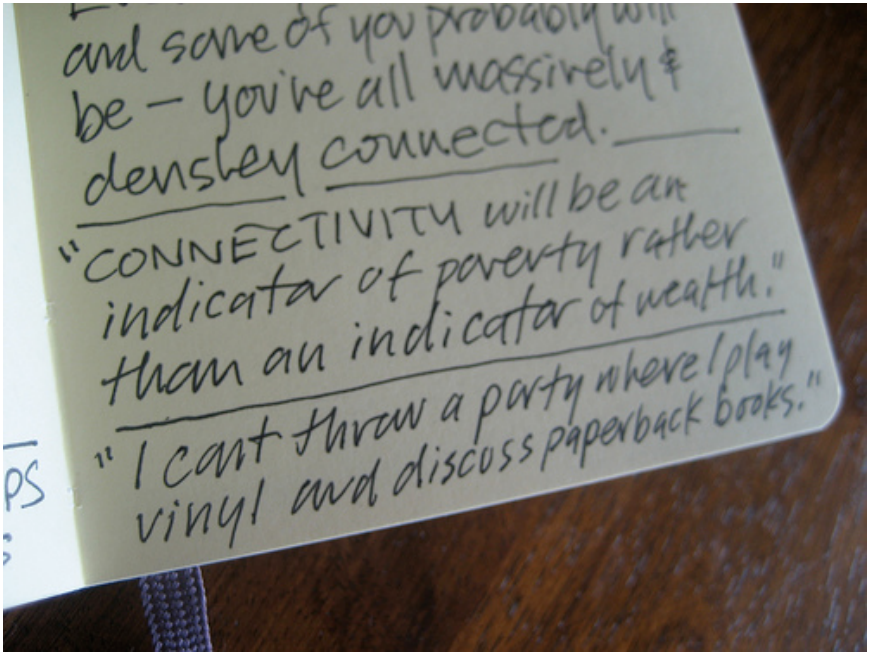 and some of you probably will
be – you're all massively &
densley connected.
"CONNECTIVITY will be an
indicator of poverty rather
than an indicator of wealth."
"I cant throw a party where I play
vinyl and discuss paperback books."
PS